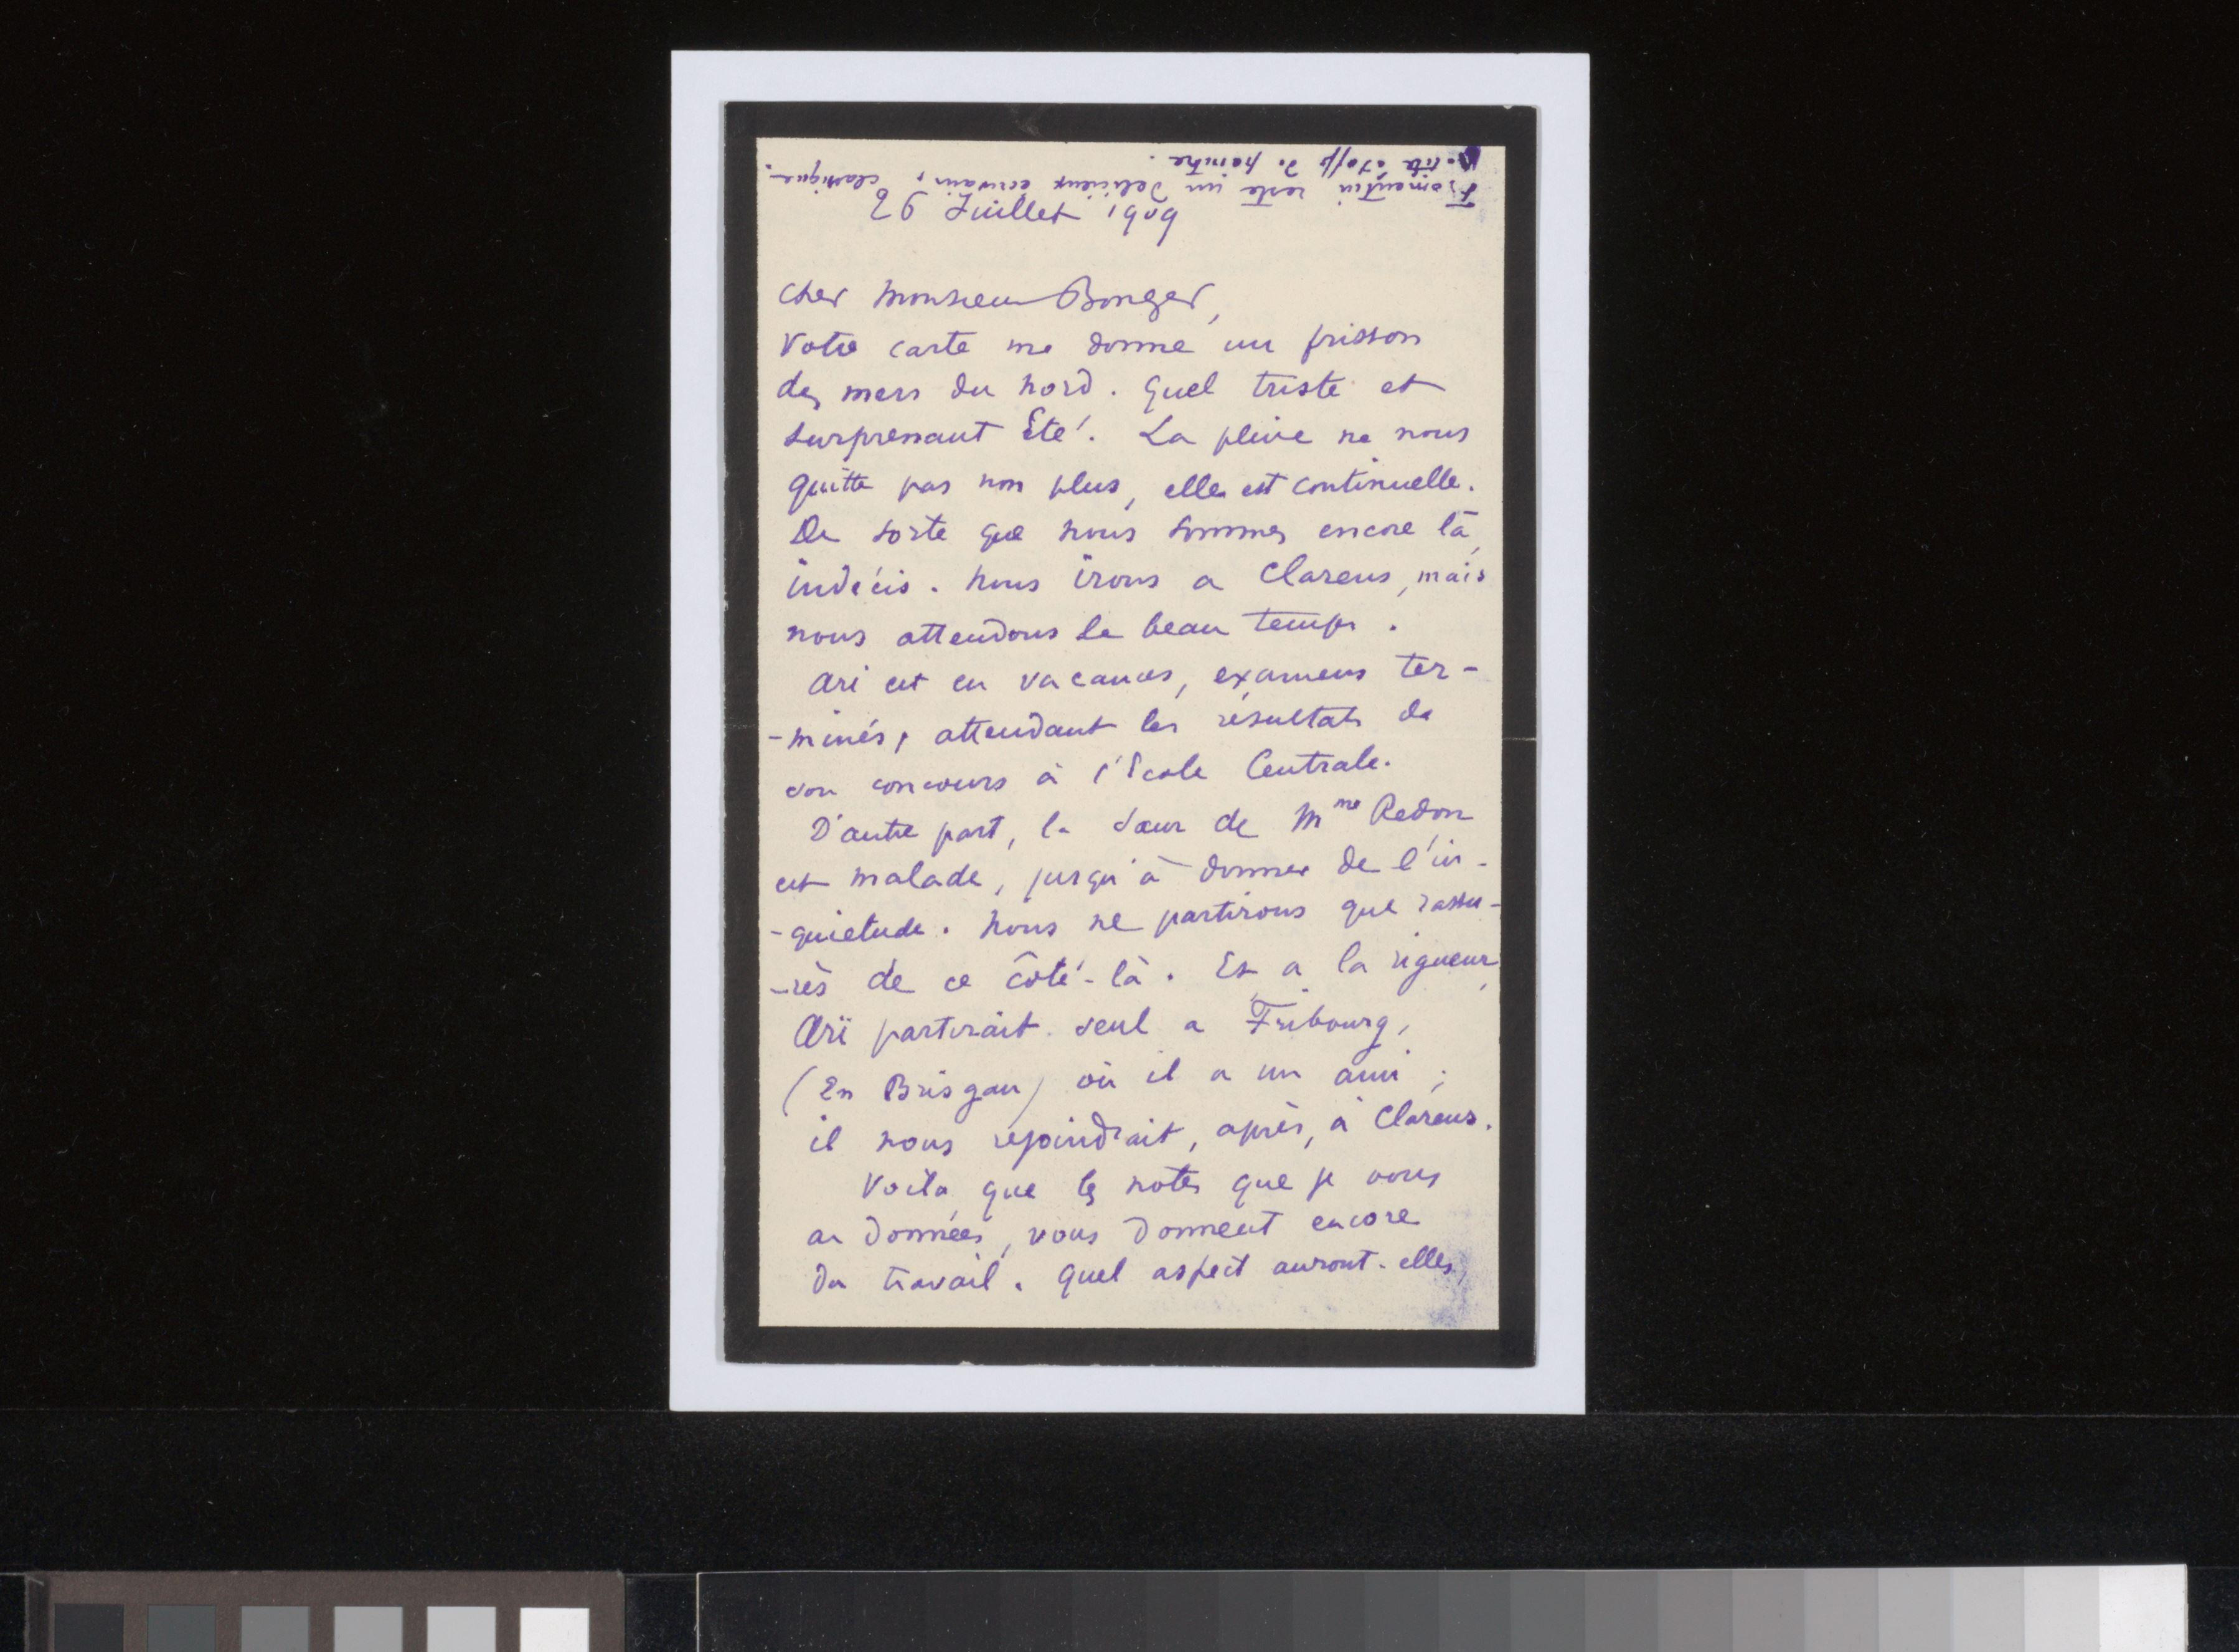 Fromentin reste un délicieux écrivain, classique.
petite étoffe de peintre.
26 Juillet 1909
Cher Monsieur Bonger,
Votre carte me donne un frisson
des mers du nord. Quel triste et
surprenant Eté. La pluie ne nous
quitte pas non plus, elle est continuelle.
De sorte que nous sommes encore là,
indécis. Nous irons a Clarens, mais
nous attendons le beau temps.
Ari est en vacances, examens ter-
-minés, attendant les résultats de
son concours à l'Ecole Centrale.
D'autre part, la sœur de Mme Redon
est malade, jusqu'à donner de l'in-
-quietude. Nous ne partirons que rassu-
-rés de ce côté-là. Et a la rigueur,
Arï partirait seul a Fribourg,
(En Brisgau) où il a un ami ;
il nous rejoindrait, après, à Clarens.
Voila que les notes que je vous
ai données, vous donnent encore
du travail. Quel aspect auront-elles,